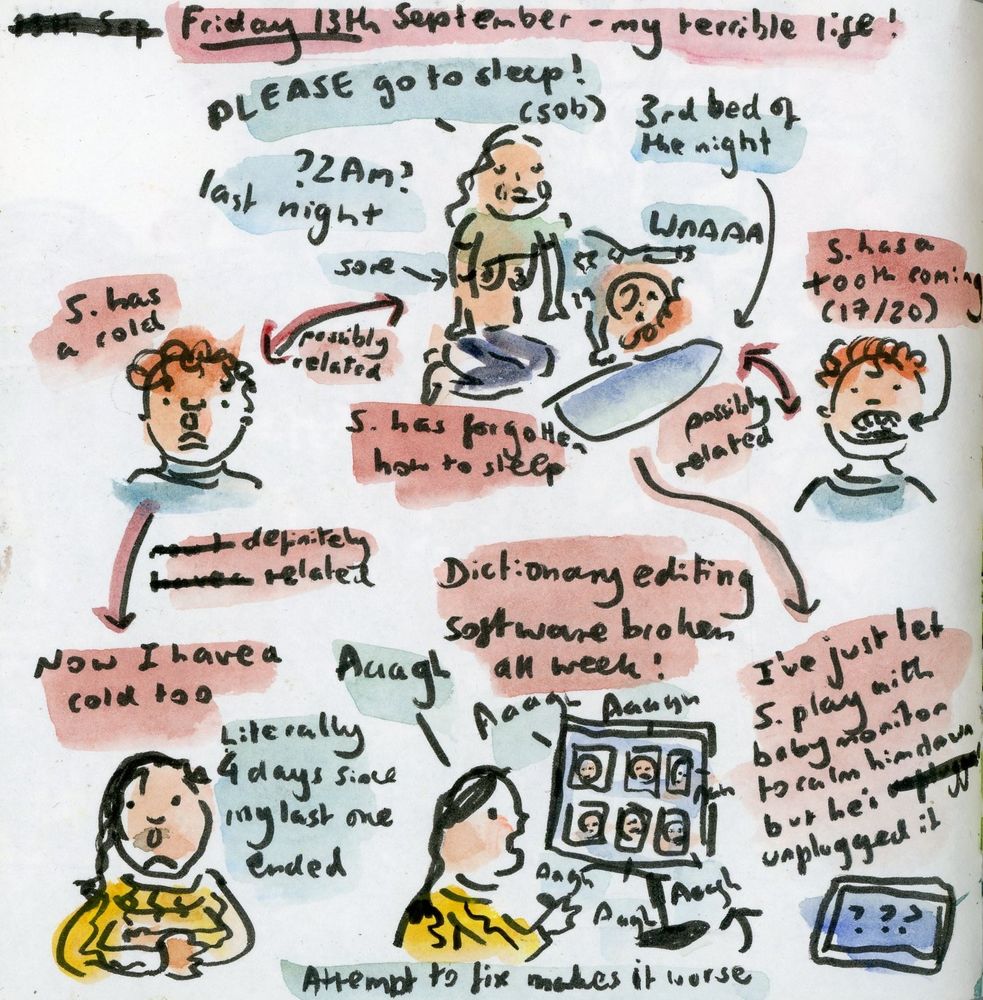 Friday 13th September - my terrible life!
PLEASE go to sleep!
(sob)
3rd bed of
the night
?2Am?
last night
WAAAA
sore
S. has a
tooth coming
(17/20)
S. has
a cold
possibly
related
S. has forgotten
how to sleep
possibly
related
definitely
related
Dictionary editing
software broken
all week!
Now I have a
cold too
Literally
4 days since
my last one
ended
Auagh
Aaagh
Aaagh
I've just let
S. play with
baby monitor
to calm him down
but he's
unplugged it
Aagh
Aaagh
Aagh
? ? ?
Attempt to fix makes it worse